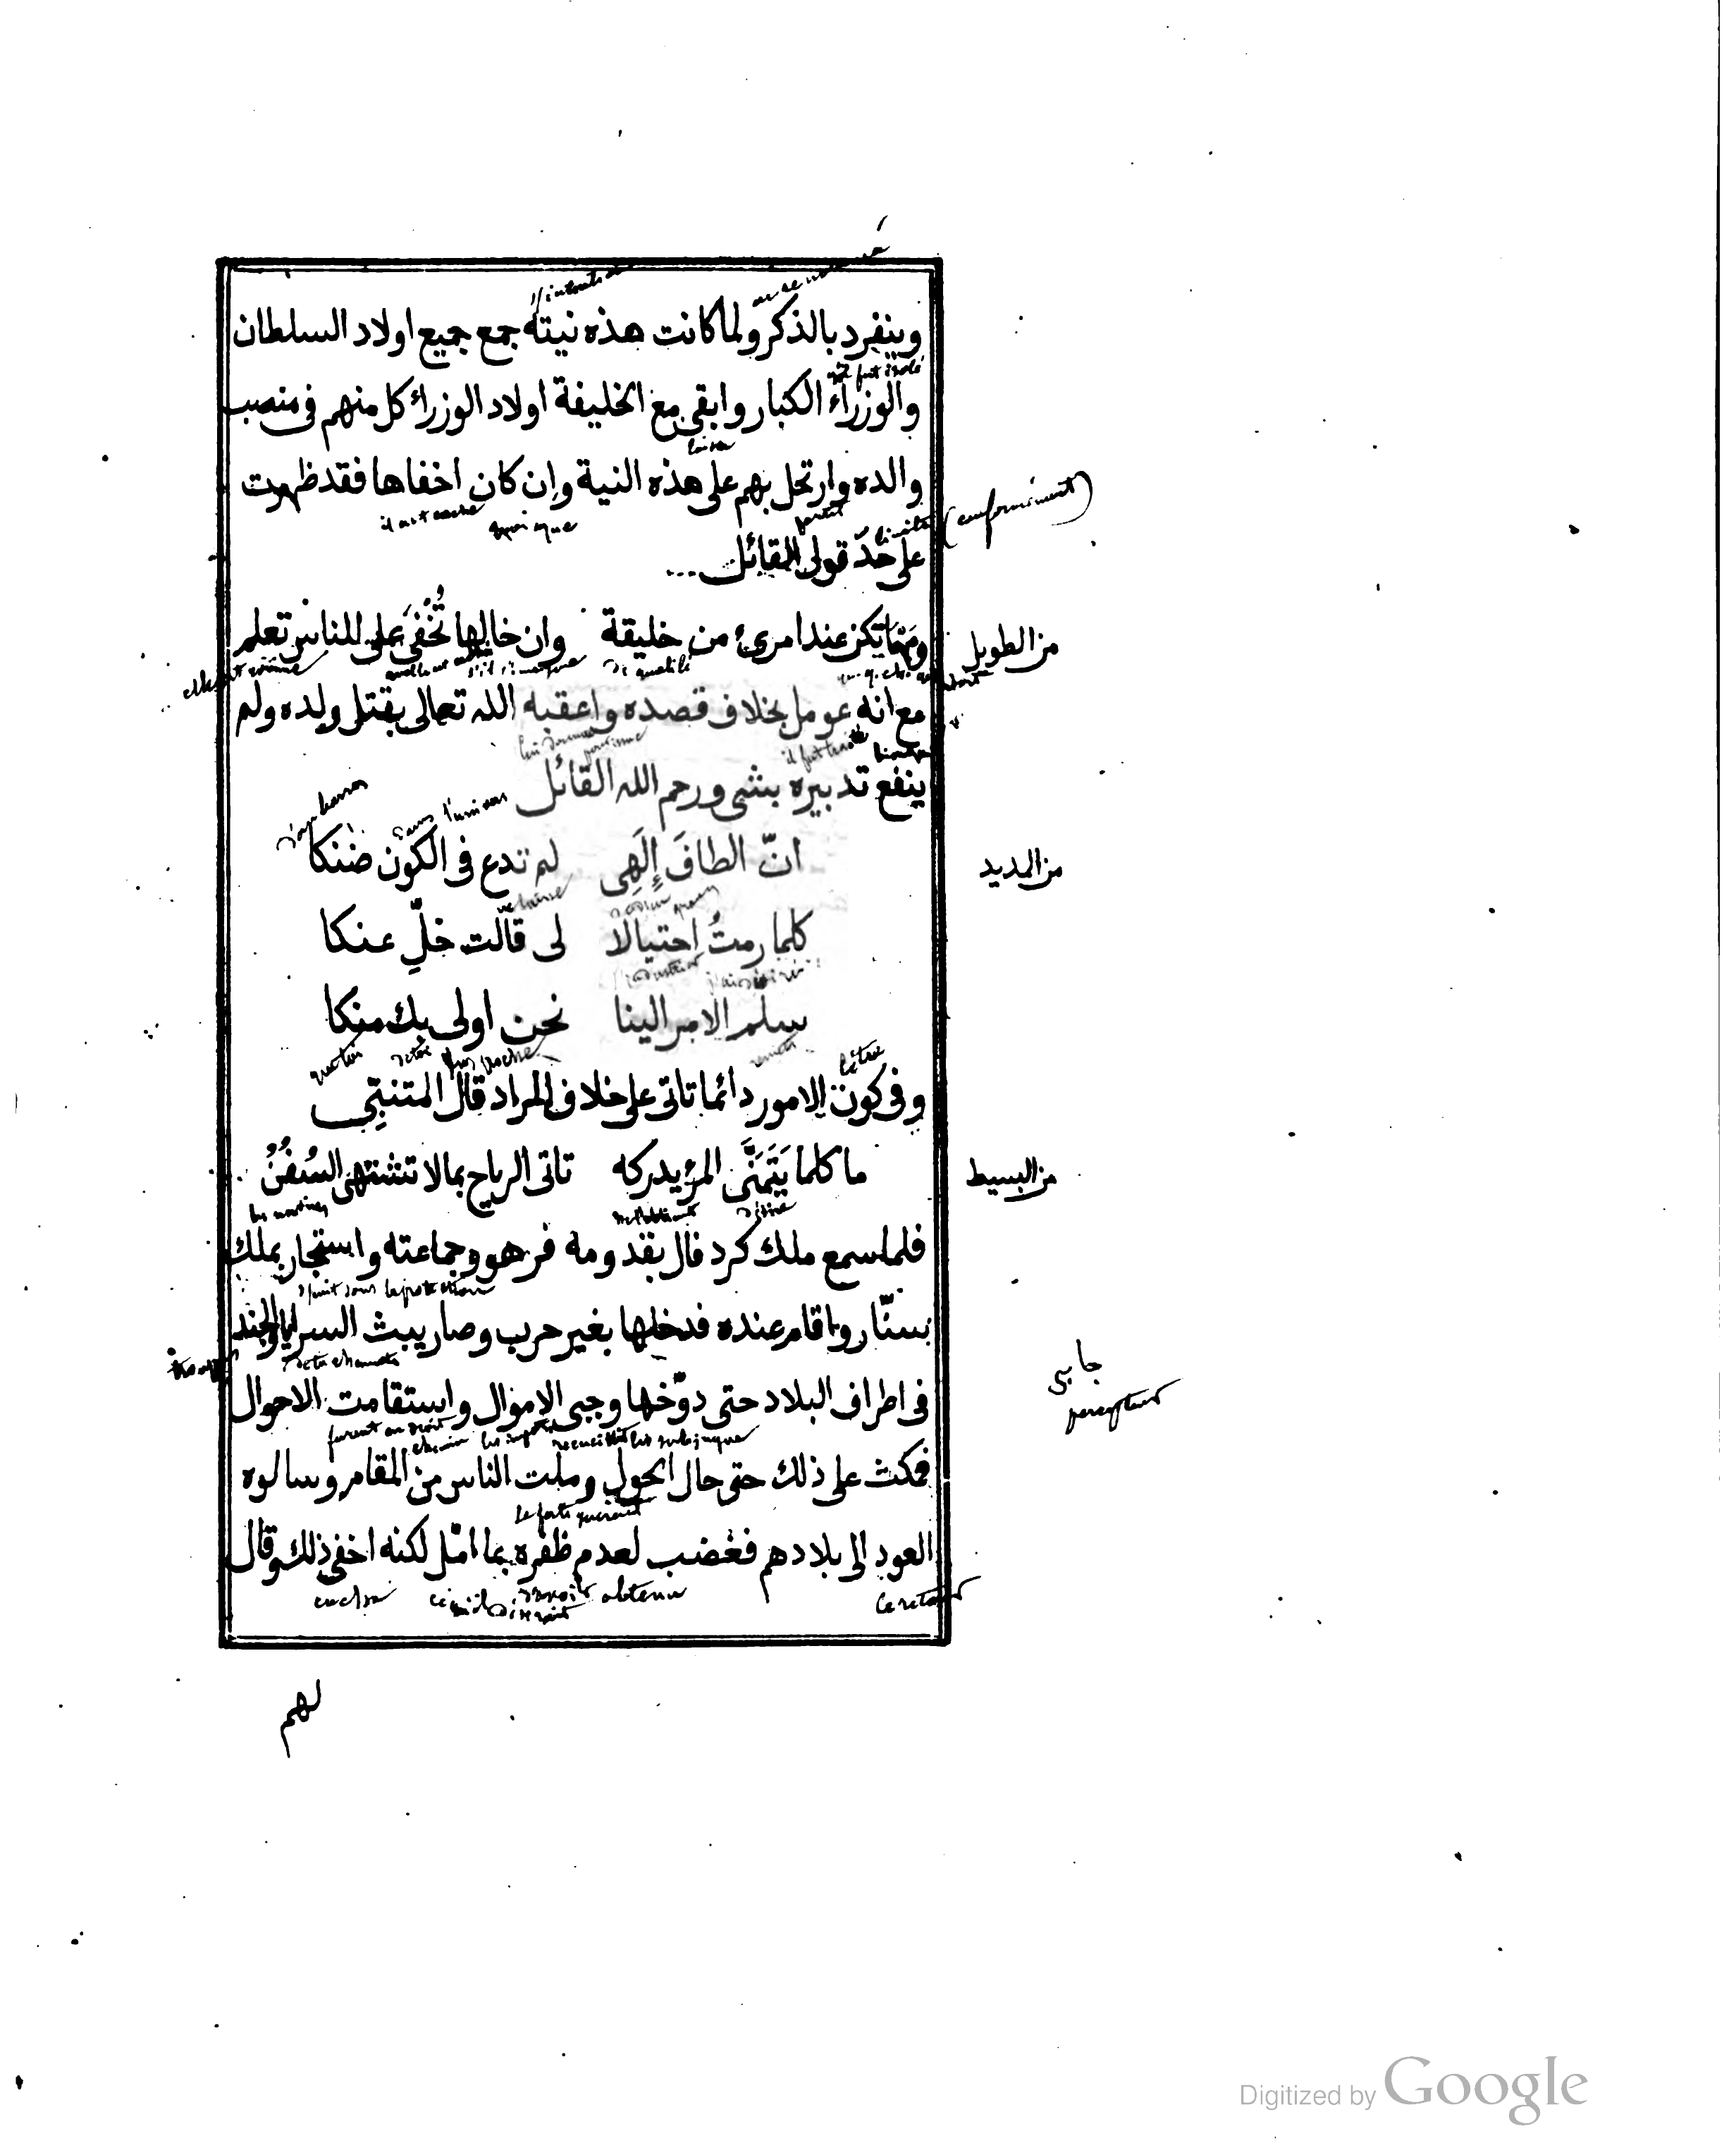 وينفرد بالذكر ولما كانت هذه نيته جمع جميع اولاد السلطان
والوزراء الكبار وابقى مع الخليفة اولاد الوزراء كل منهم فى منصب
والده وارتحل بهم على هذه النية وإن كان اخفاها فقد ظهرت
(conformément)
il a cache
quoique
على حَدّ قول القائل ...
ومَهْمَا تكن عند امرئ من خليقة وان خالها تُخْفَى على للناس تعلم
من الطويل
مع انه عومل بخلاف قصده واعقبه الله تعالى بقتل ولده ولم
ينفع تدبيره بشى ورحم الله القائل
انّ الطافَ إِلَهِى لم تدع فى الكون ضنكا
من المديد
كلما رمتُ احتيالا لى قالت خلِّ عنكا
سلم الامر الينا نحن اولى بك منكا
وفى كون الامور دائما تاتى على خلاف المراد قال المتنبّى
ما كلما يَتَمَنَّى المرؤ يدركه تاتى الرياح بمالا تشتهى السُفُنُ
من البسيط
فلما سمع ملك كرد فال بقدومه فر هو وجماعته واستجار بملك
بسنّار واقام عنده فدخلها بغير حرب وصار يبث السرايا والجند
جابى
percepteur
فى اطراف البلاد حتى دوّخها وجبى الاموال واستقامت الاحوال
فمكث على ذلك حتى حال الحول وملت الناس من المقام وسالوه
العود الى بلادهم فغضب لعدم ظفره بما امّل لكنه اخفى ذلك وقال
cacha
obtenu
le retour
لهم
Digitized by Google